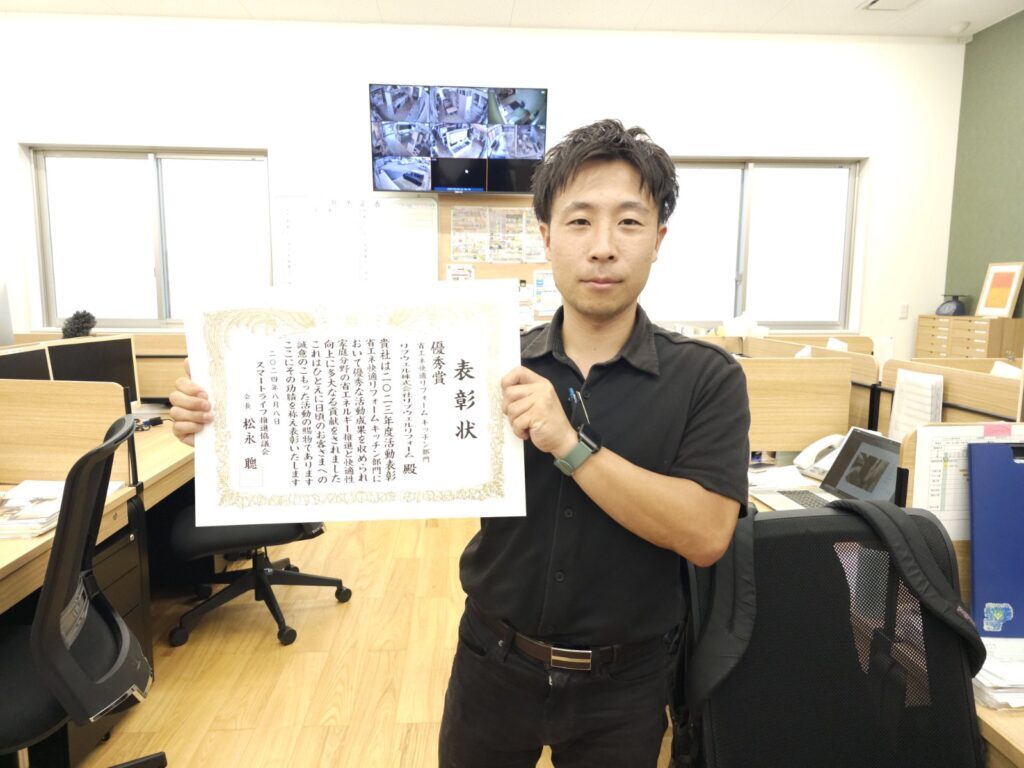 表彰状
優秀賞
省エネ快適リフォーム キッチン部門
リブウェル株式会社リブウェルリフォーム 殿
貴社は二〇二三年度活動表彰
省エネ快適リフォームキッチン部門に
おいて優秀な活動成果を収められ
家庭分野の省エネルギー推進と快適性
向上に多大なる貢献をされました
これはひとえに日頃のお客さまへの
誠意のこもった活動の賜物であります
ここにその功績を称え表彰いたします
二〇二四年八月八日
スマートライフ推進協議会
会長 松永 聰